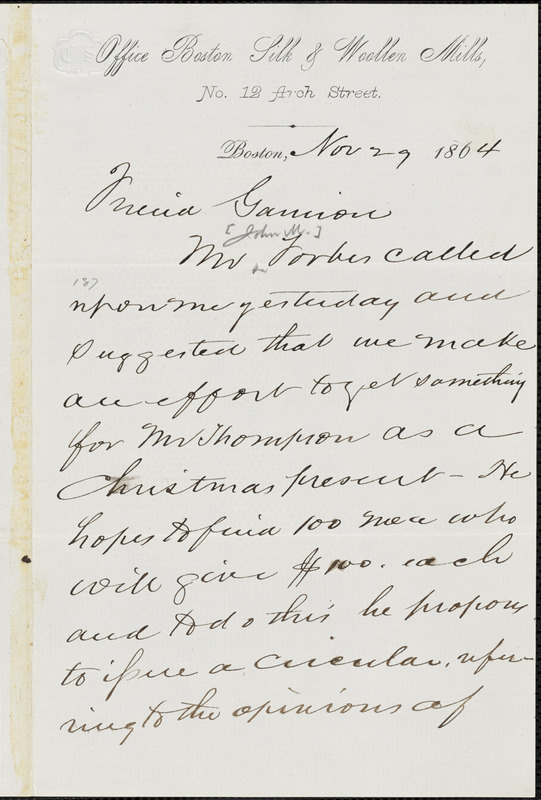 Office Boston Silk & Woollen Mills,
No. 12 Arch Street.
Boston, Nov 29 1864
Friend Garrison
[John M.]
Mr Forbes called
187
upon me yesterday and
suggested that we make
an effort to get something
for Mr Thompson as a
Christmas present - He
hopes to find 100 men who
will give $100. each
and to do this he proposes
to issue a circular, refer-
ring to the opinions of